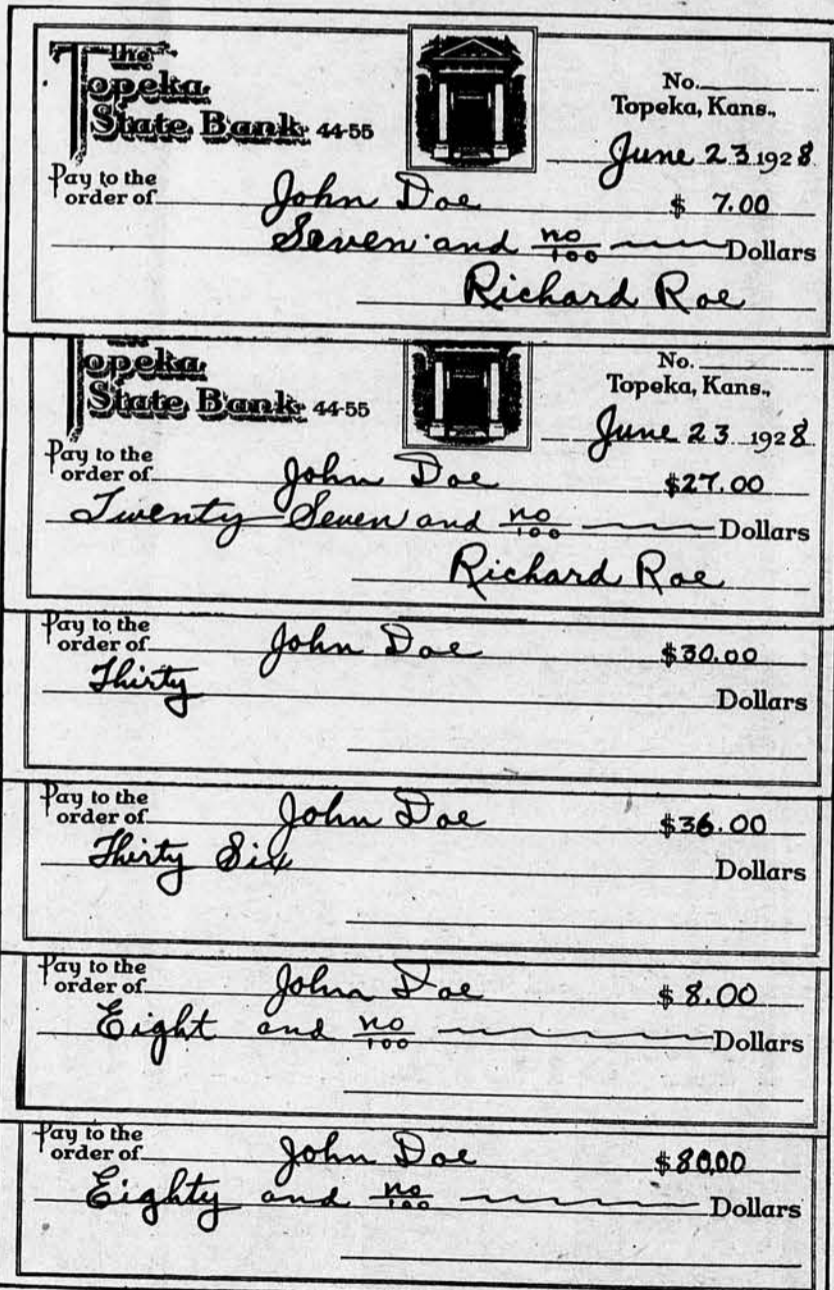 The
Topeka
State Bank 44-55
No.
Topeka, Kans.,
June 23 1928
Pay to the
order of John Doe $ 7.00
Seven and no/100 Dollars
Richard Roe
Topeka
State Bank 44-55
No.
Topeka, Kans.,
June 23 1928
Pay to the
order of John Doe $27.00
Twenty Seven and no/100 Dollars
Richard Roe
Pay to the
order of John Doe $30.00
Thirty Dollars
Pay to the
order of John Doe $36.00
Thirty Six Dollars
Pay to the
order of John Doe $ 8.00
Eight and no/100 Dollars
Pay to the
order of John Doe $80.00
Eighty and no/100 Dollars